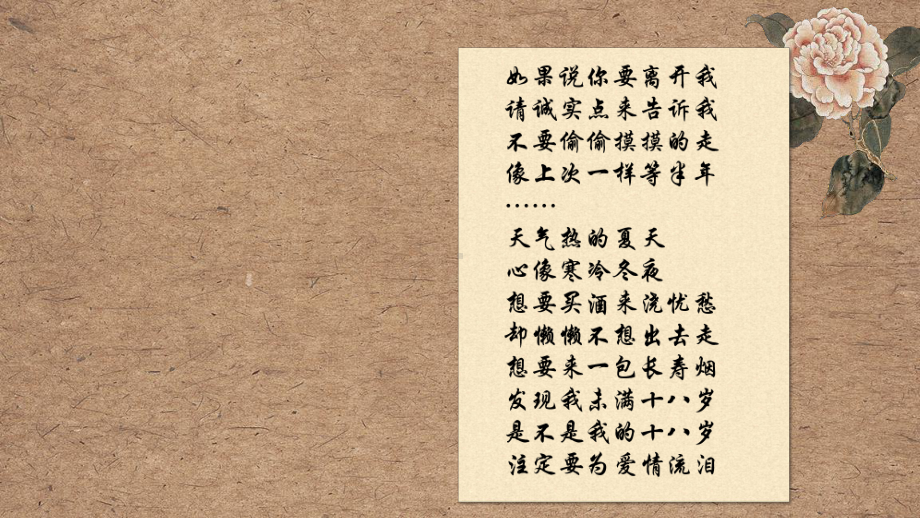 如果说你要离开我
请诚实点来告诉我
不要偷偷摸摸的走
像上次一样等半年
……
天气热的夏天
心像寒冷冬夜
想要买酒来浇忧愁
却懒懒不想出去走
想要来一包长寿烟
发现我未满十八岁
是不是我的十八岁
注定要为爱情流泪